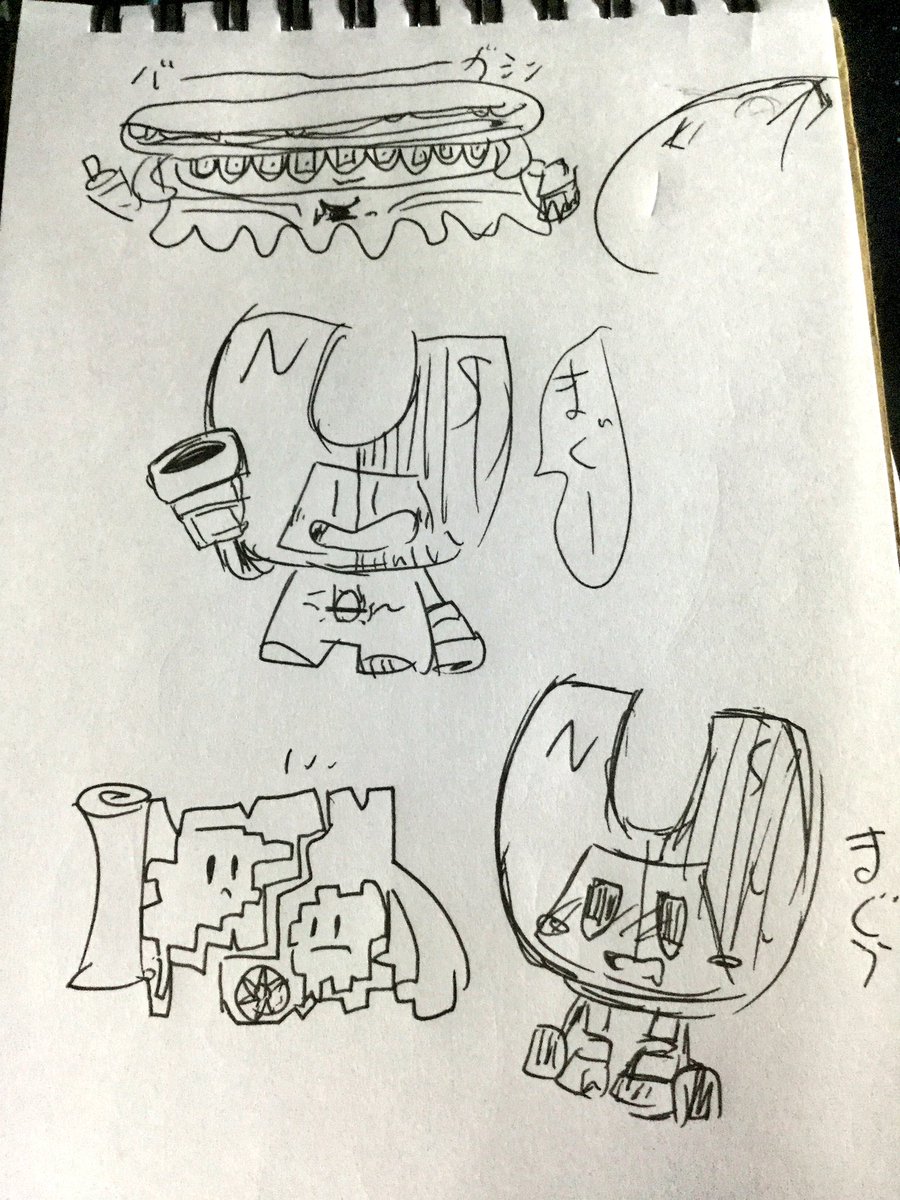 バーガシン
N S
まぐー
N S
まぐぅ